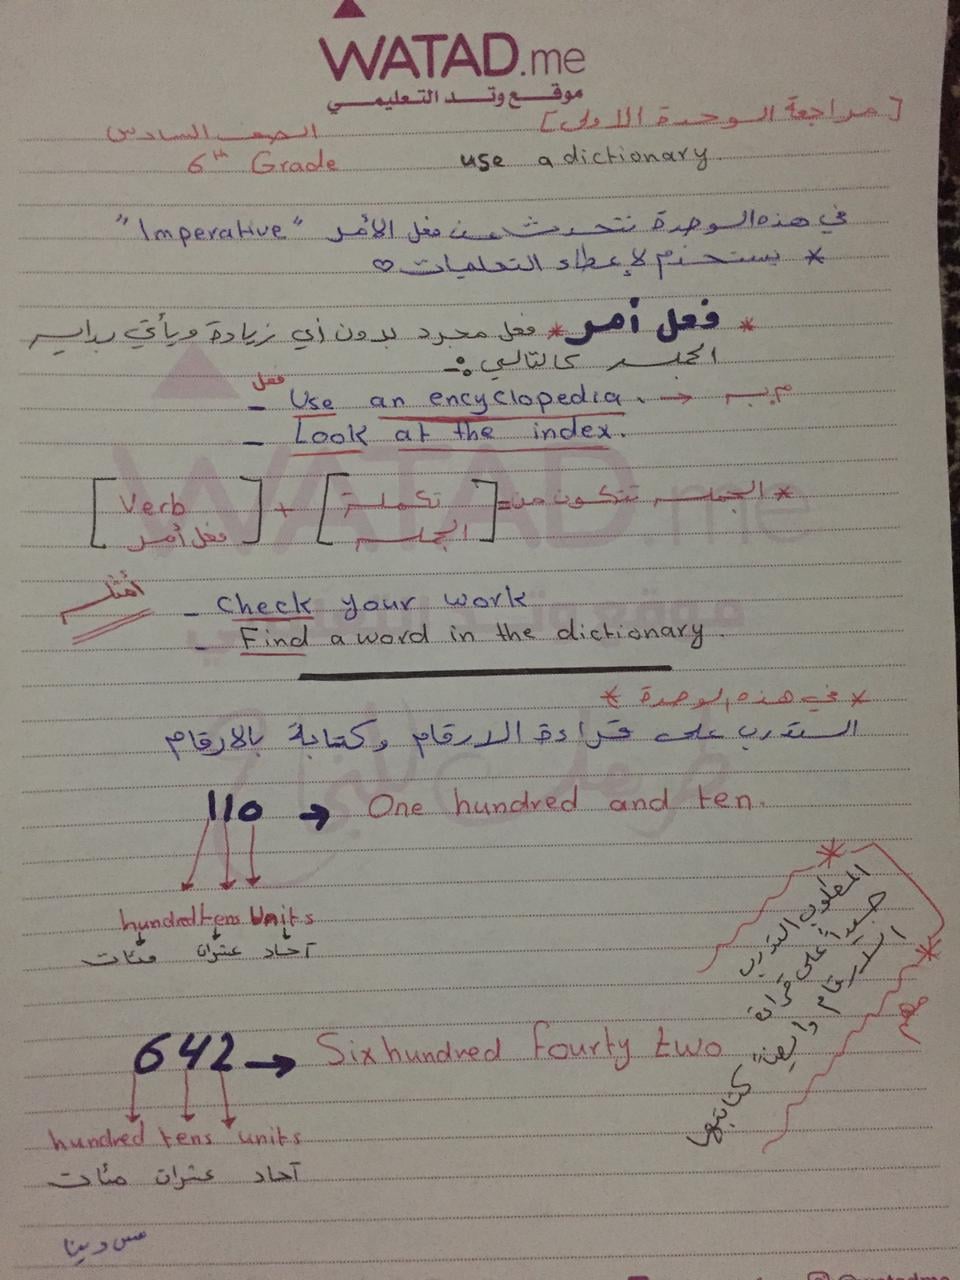 WATAD.me
موقع وتد التعليمي
[مراجعة الوحدة الاولى]
الصف السادس
6th Grade
use a dictionary
في هذه الوحدة نتحدث عن فعل الأمر "Imperative"
* يستخدم لإعطاء التعليمات ♡
* فعل أمر * فعل مجرد بدون أي زيادة ويأتي بداية
الجملة كالتالي :-
فعل
- Use an encyclopedia. →
- Look at the index.
* الجملة تتكون من = [تكملة الجملة] + [Verb فعل أمر]
أمثلة
- Check your work
- Find a word in the dictionary.
* في هذه الوحدة *
التدرب على قراءة الارقام وكتابة بالارقام
110 → One hundred and ten.
hundred tens Units
مئات عشرات آحاد
* المطلوب التدرب
جيداً على قراءة
الارقام وايضاً كتابتها *
مهم
642 → Six hundred Fourty two
hundred tens units
مئات عشرات آحاد
مس دينا